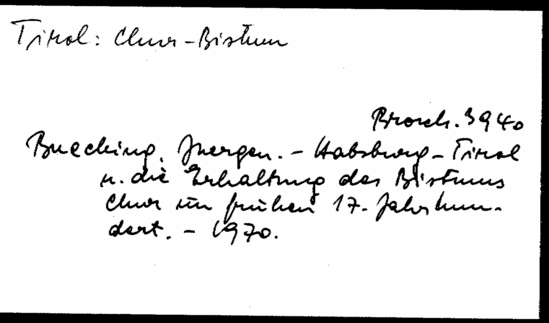 Tirol: Chur-Bistum
Brosch. 3940
Buecking, Juergen. - Habsburg-Tirol
u. die Erhaltung des Bistums
Chur im frühen 17. Jahrhun-
dert. - 1970.